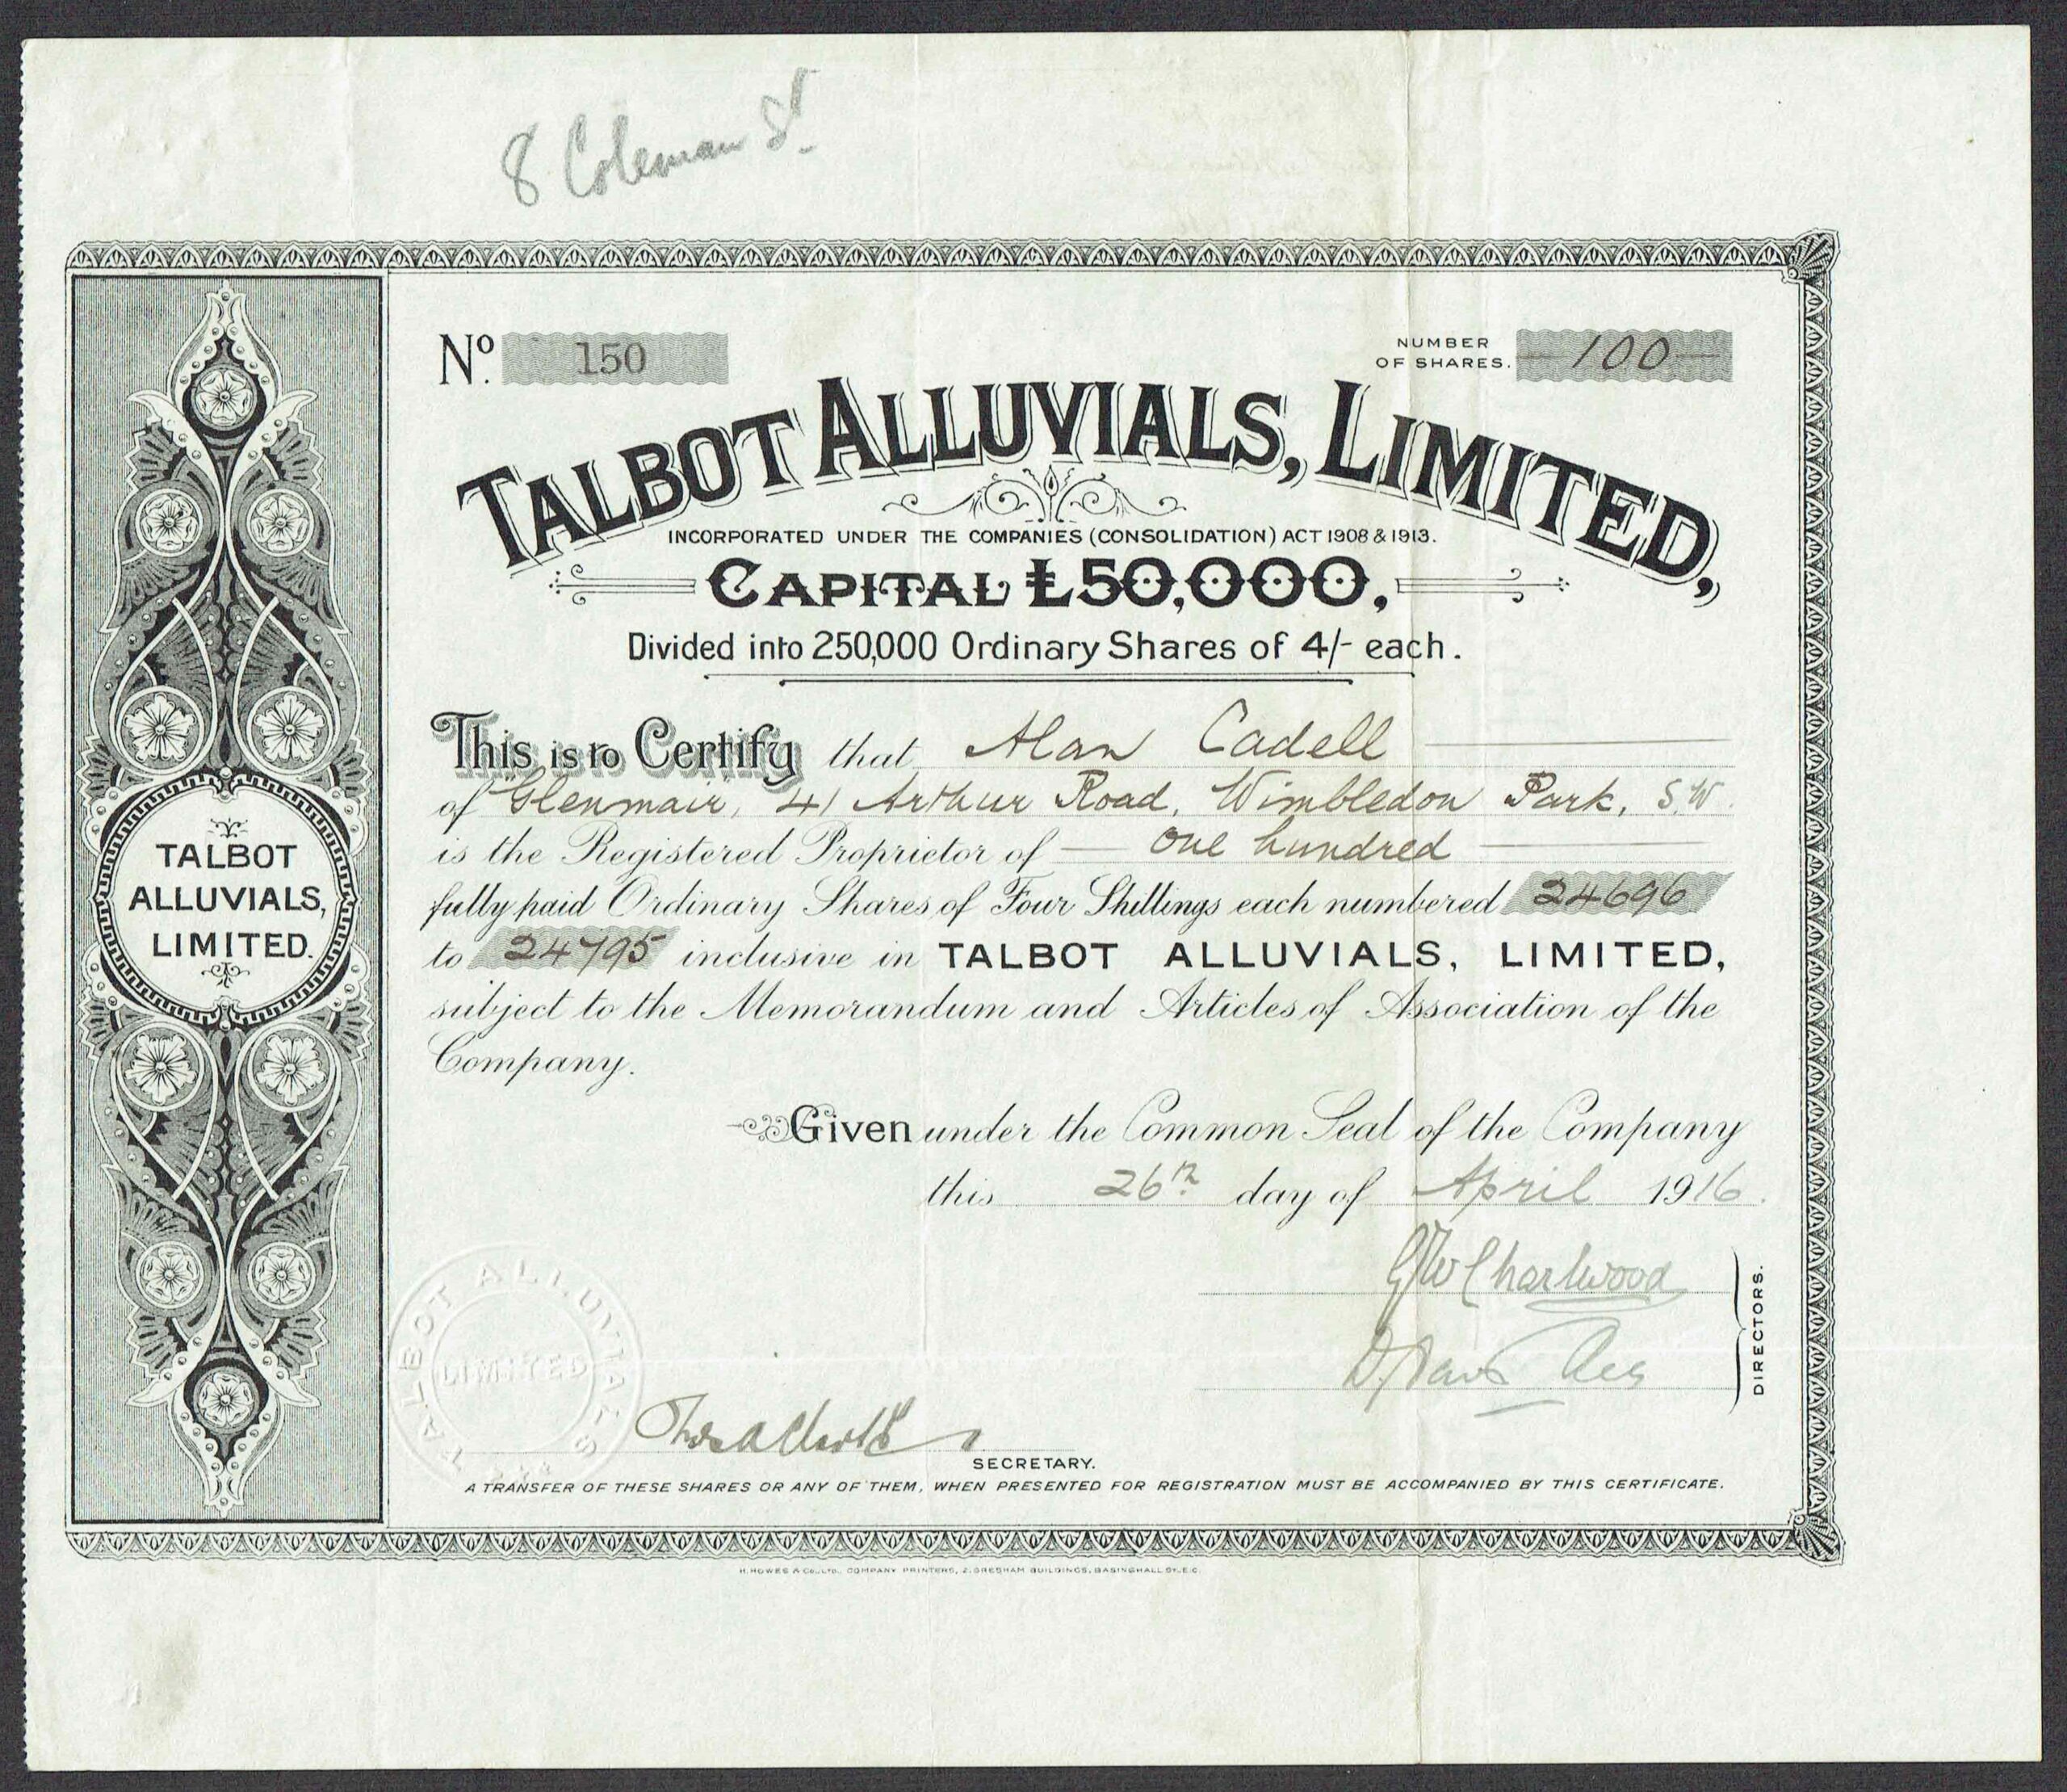 8 Coleman St.
No. 150
NUMBER
OF SHARES. 100
TALBOT ALLUVIALS, LIMITED,
INCORPORATED UNDER THE COMPANIES (CONSOLIDATION) ACT 1908 & 1913.
CAPITAL £50,000,
Divided into 250,000 Ordinary Shares of 4/- each.
This is to Certify that Alan Cadell
of "Glenmair, 41 Arthur Road, Wimbledon Park, S.W.
is the Registered Proprietor of — one hundred —
fully paid Ordinary Shares of Four Shillings each numbered 24696
to 24795 inclusive in TALBOT ALLUVIALS, LIMITED,
subject to the Memorandum and Articles of Association of the
Company.
Given under the Common Seal of the Company
this 26th day of April 1916.
TALBOT
ALLUVIALS,
LIMITED.
G W Charlwood
DIRECTORS.
TALBOT ALLUVIALS
LIMITED
SECRETARY.
A TRANSFER OF THESE SHARES OR ANY OF THEM, WHEN PRESENTED FOR REGISTRATION MUST BE ACCOMPANIED BY THIS CERTIFICATE.
H. HOWES & CO., LTD., COMPANY PRINTERS, 2, GRESHAM BUILDINGS, BASINGHALL ST., E.C.